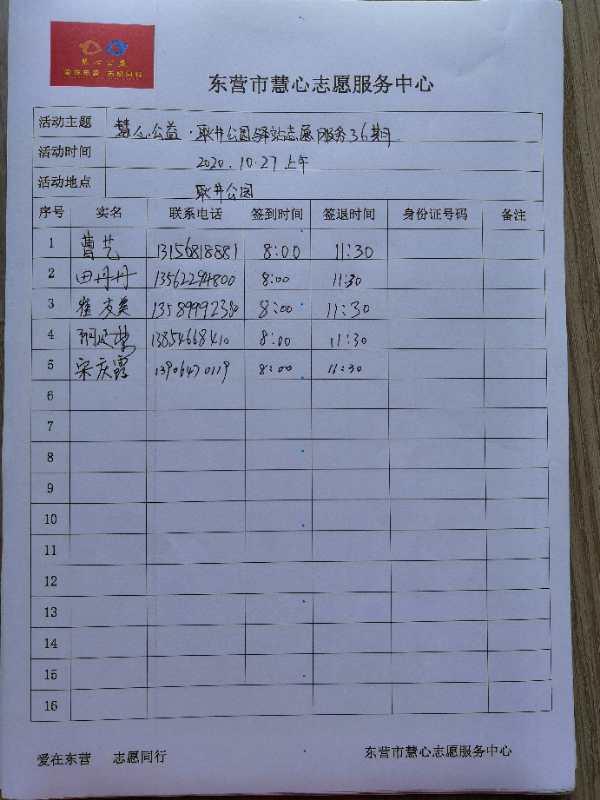 慧心公益
爱在东营 志愿同行
东营市慧心志愿服务中心
活动主题 慧心公益·耿井公园驿站志愿服务36期
活动时间 2020.10.27上午
活动地点 耿井公园
序号 实名 联系电话 签到时间 签退时间 身份证号码 备注
1 曹艺 13156818881 8:00 11:30
2 田丹丹 13562294800 8:00 11:30
3 崔友美 13589992380 8:00 11:30
4 13854668410 8:00 11:30
5 宋庆霞 13906470119 8:00 11:30
6
7
8
9
10
11
12
13
14
15
16
爱在东营 志愿同行 东营市慧心志愿服务中心